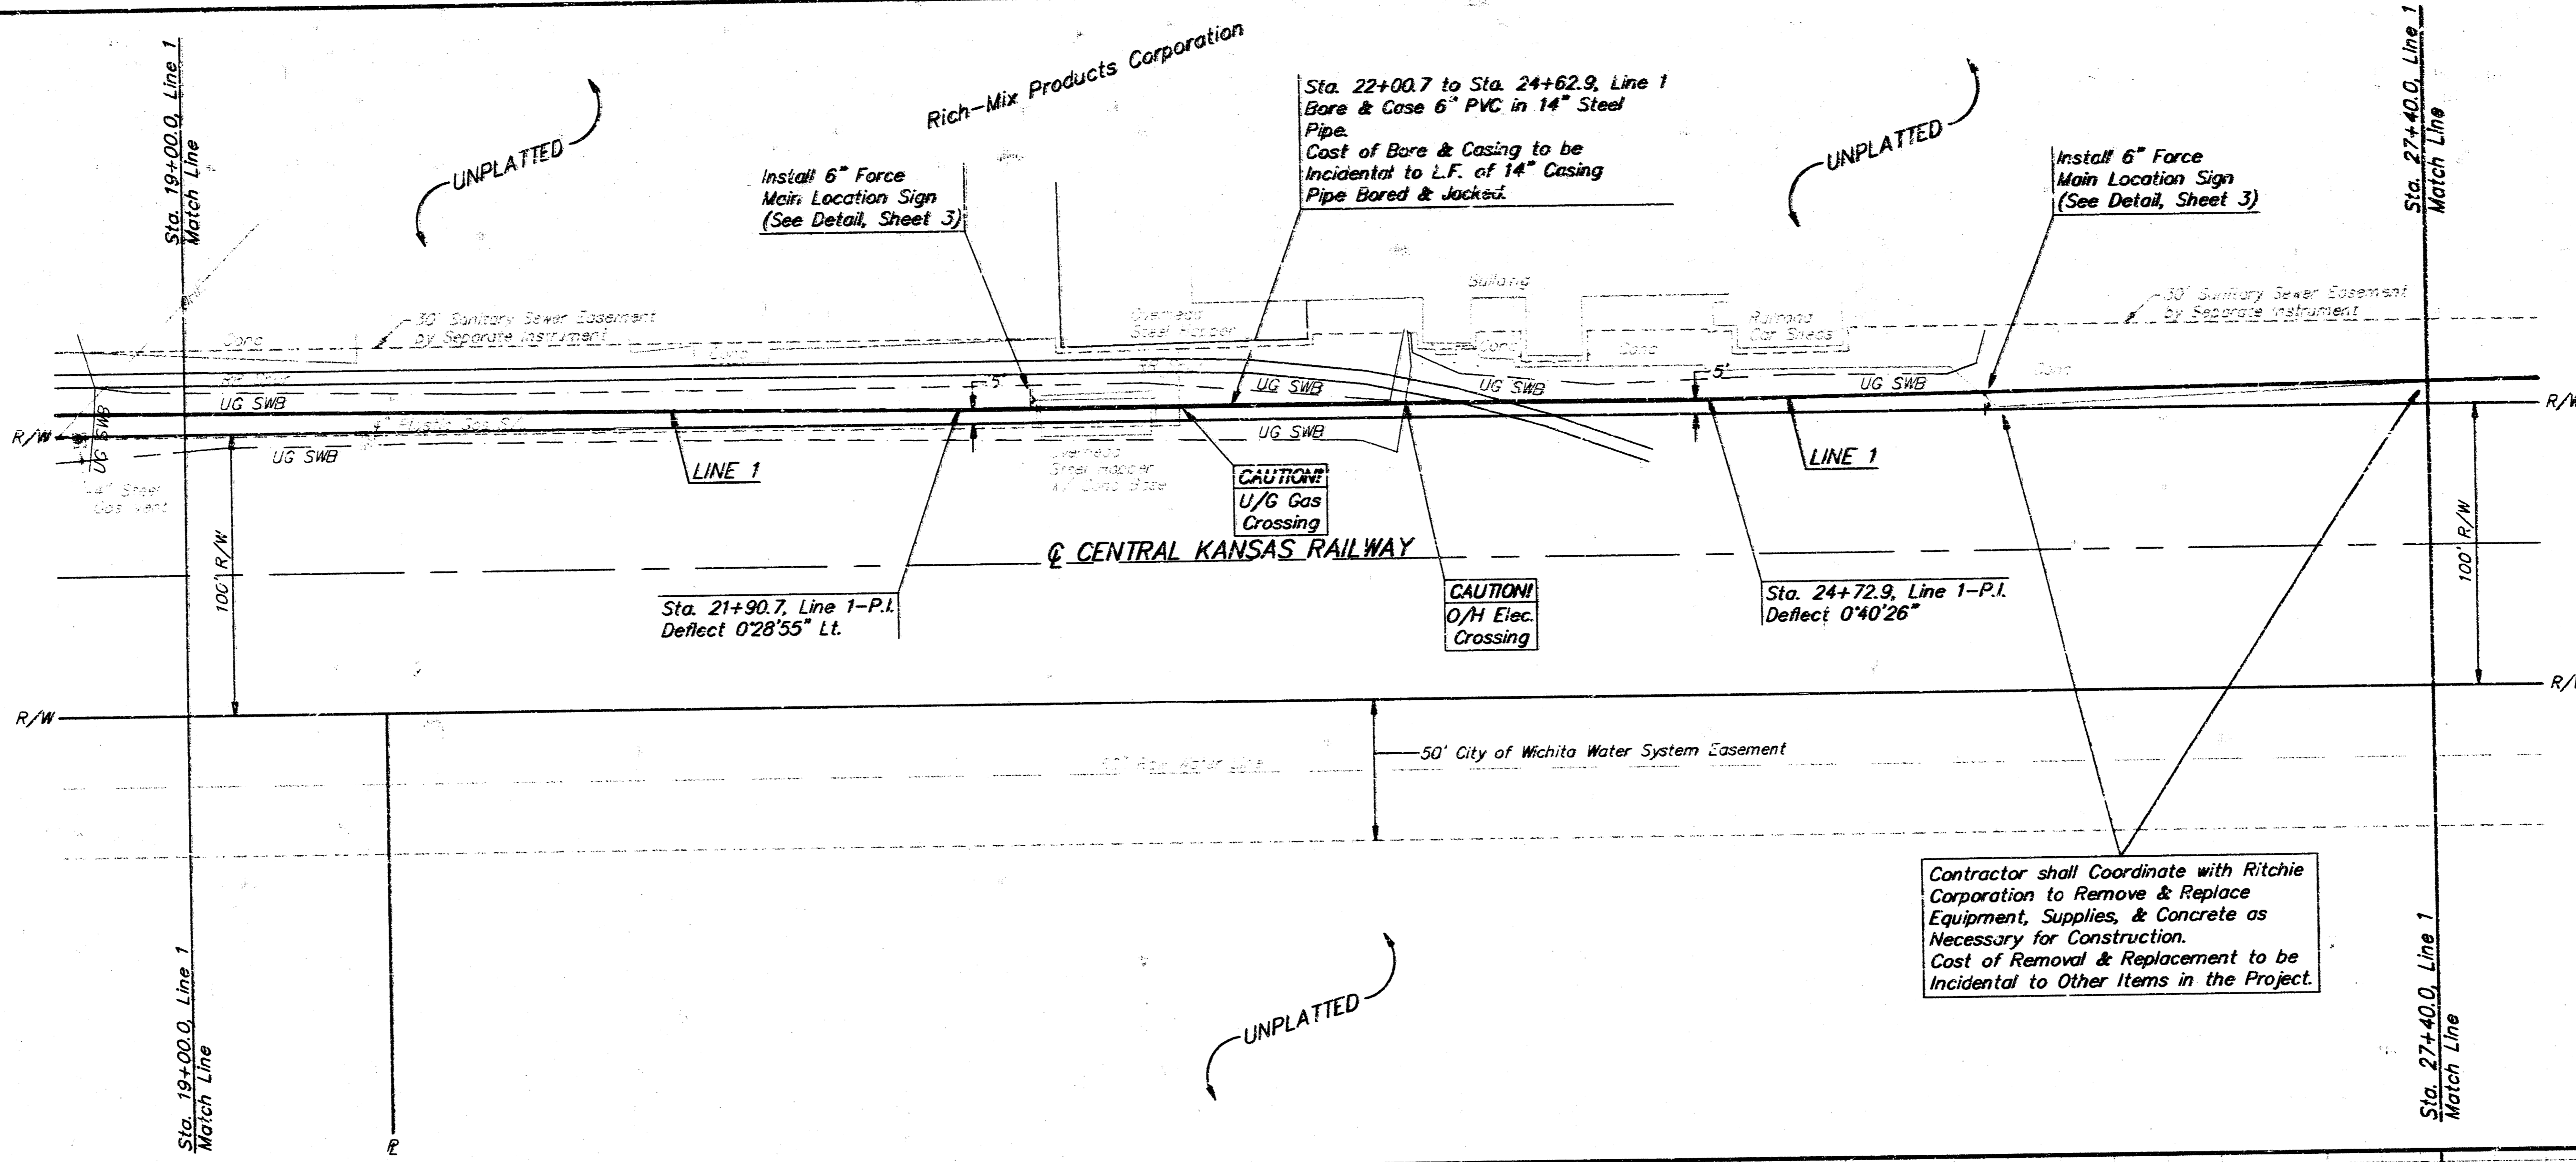 Sta. 19+00.0, Line 1
Match Line
UNPLATTED
Rich-Mix Products Corporation
Install 6" Force
Main Location Sign
(See Detail, Sheet 3)
Sta. 22+00.7 to Sta. 24+62.9, Line 1
Bore & Case 6" PVC in 14" Steel
Pipe.
Cost of Bore & Casing to be
Incidental to L.F. of 14" Casing
Pipe Bored & Jacked.
UNPLATTED
Install 6" Force
Main Location Sign
(See Detail, Sheet 3)
Sta. 27+40.0, Line 1
Match Line
Conc
30' Sanitary Sewer Easement
by Separate Instrument
Conc
Overhead
Steel Hopper
Building
Conc
Conc
Railroad
Car Sheds
30' Sanitary Sewer Easement
by Separate Instrument
Conc
UG SWB
5'
UG SWB
UG SWB
5'
UG SWB
R/W
UG SWB
Plastic Gas
UG SWB
UG SWB
R/W
4" Steel
Gas Vent
LINE 1
Overhead
Steel Hopper
w/ Conc Base
CAUTION!
U/G Gas
Crossing
LINE 1
100' R/W
℄ CENTRAL KANSAS RAILWAY
100' R/W
Sta. 21+90.7, Line 1-P.I.
Deflect 0°28'55" Lt.
CAUTION!
O/H Elec.
Crossing
Sta. 24+72.9, Line 1-P.I.
Deflect 0°40'26"
R/W
R/W
Raw Water Line
50' City of Wichita Water System Easement
Contractor shall Coordinate with Ritchie
Corporation to Remove & Replace
Equipment, Supplies, & Concrete as
Necessary for Construction.
Cost of Removal & Replacement to be
Incidental to Other Items in the Project.
UNPLATTED
Sta. 19+00.0, Line 1
Match Line
Sta. 27+40.0, Line 1
Match Line
PL